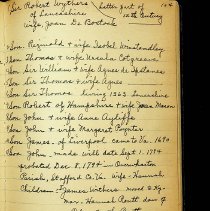 Sir Robert Wythers latter part of
of Lancashire 12th Century
Wife, Joan De Bostock
Son. Reginald + wife Isobel Winstandley
Son Thomas + wife Ursula Cotgreave
Son Sir William + wife Agnes de Ipstanes
Son Sir Thomas + wife Agnes
Son Sir Thomas living 1363 Lancashire
Son Robert of Hampshire + wife Joan Mason
Son John + wife Anne Ayliffe
Son John + wife Margaret Poynter
Son James. of Liverpool came to Va. 1690
Son John, made will Sept 1. 1794
probated Dec 8. 1794 - in Overwharton
Parish, Stafford Co. Va. wife - Hannah
Children - James Withers moved to Ky-
mar. Hannah Routt dau of